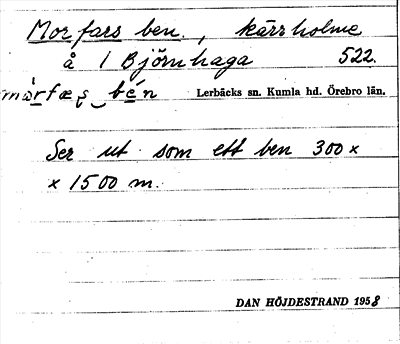 Morfars ben., kärrholme
å 1 Björnhaga 522.
Lerbäcks sn. Kumla hd. Örebro län.
Ser ut som ett ben 300 x
x 1500 m.
DAN HÖJDESTRAND 1958